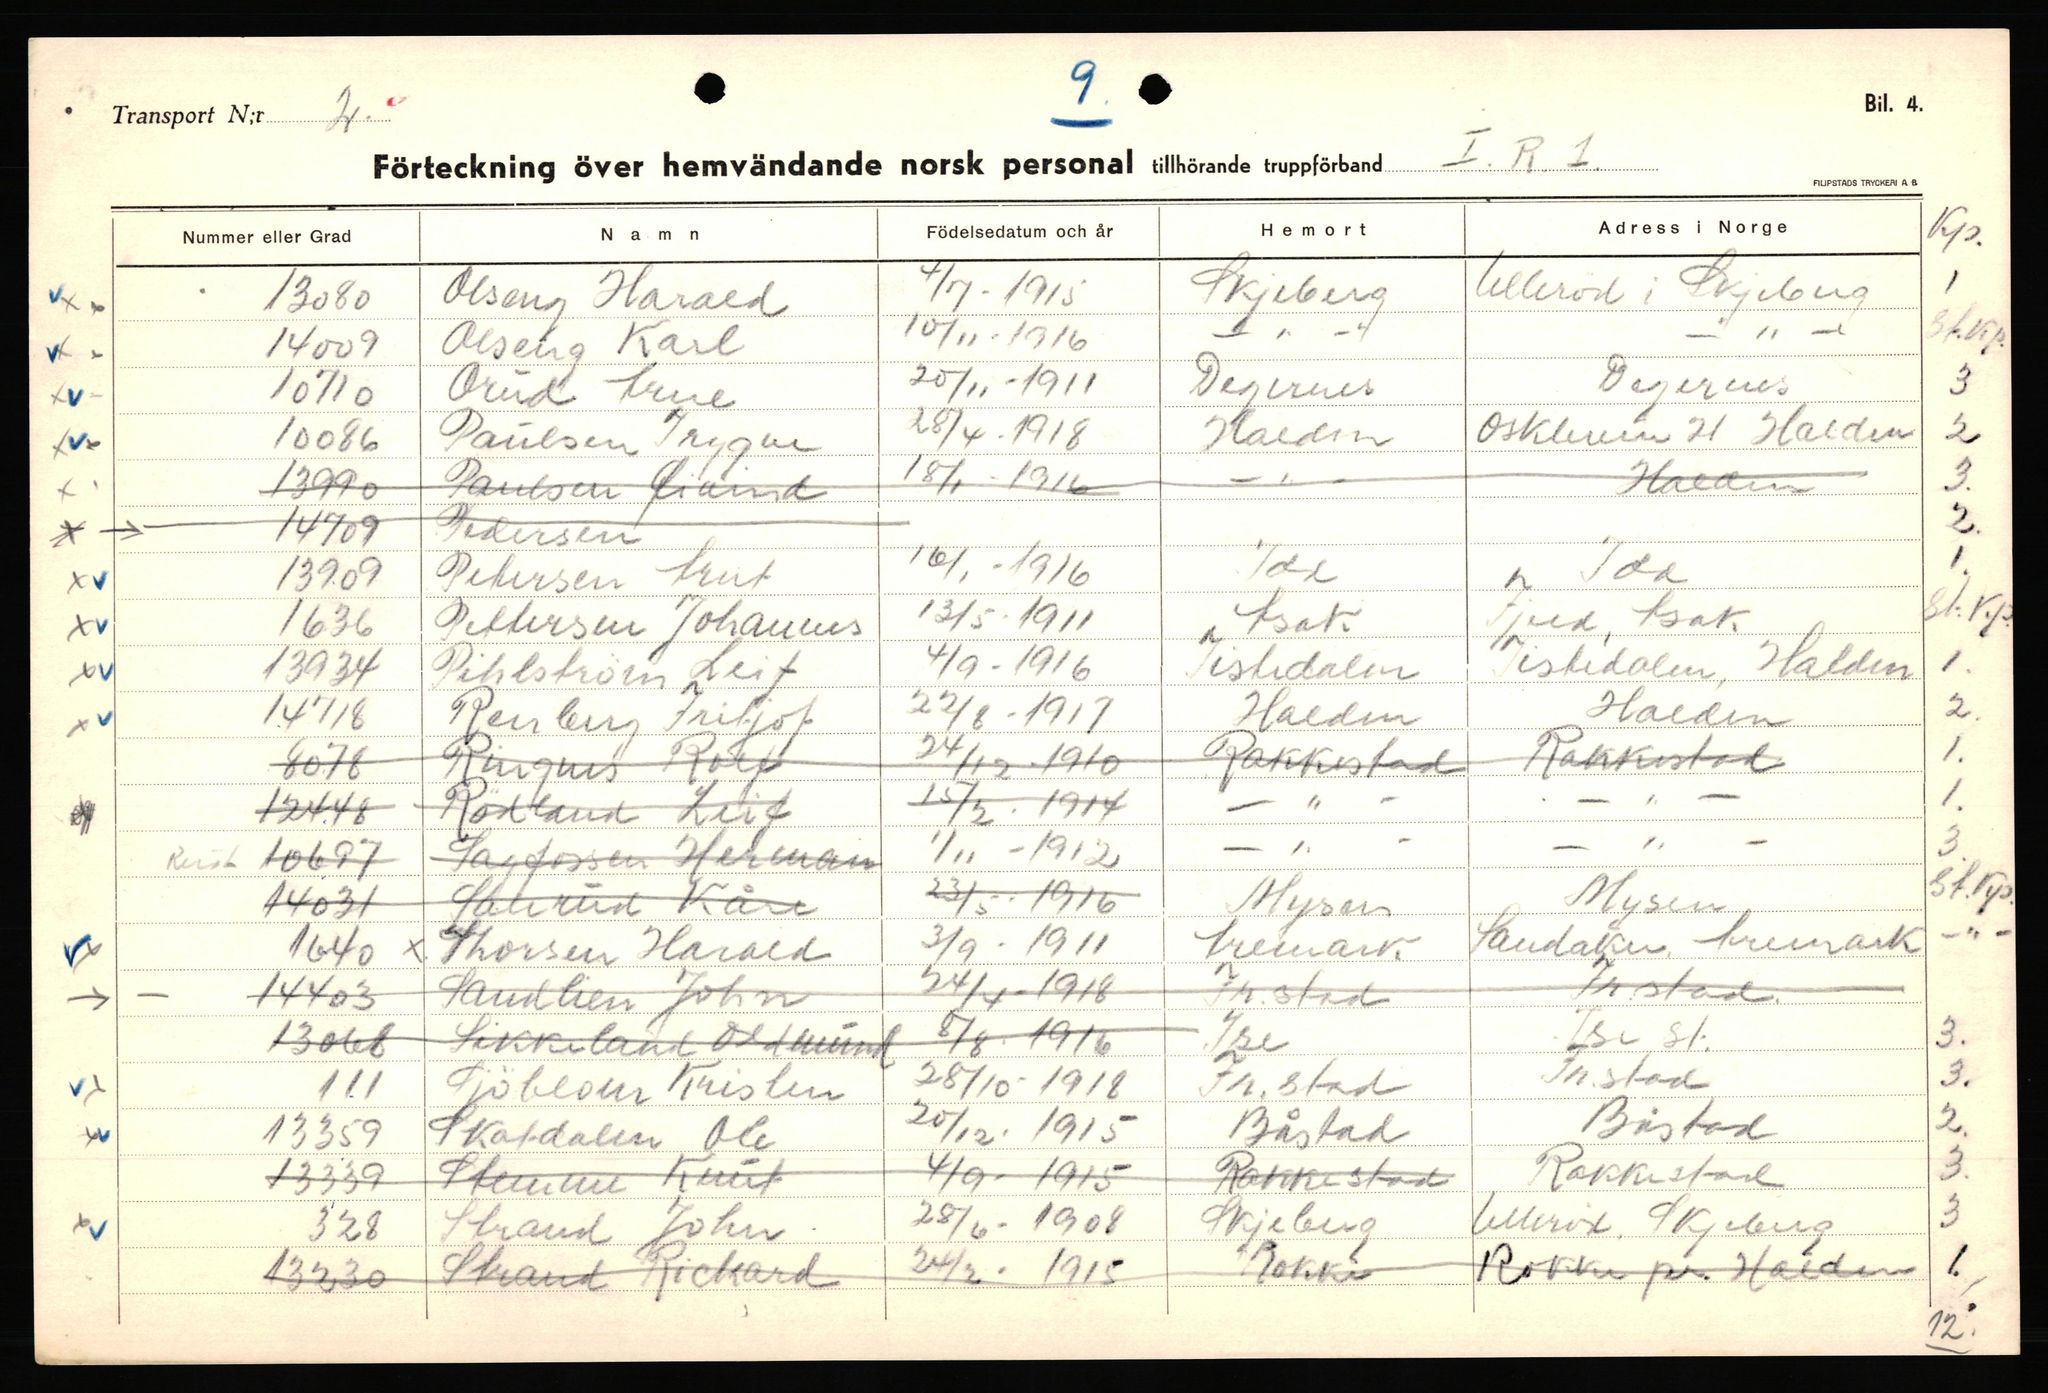 9.
Transport N;r 2. Bil. 4.
Förteckning över hemvändande norsk personal tillhörande truppförband I. R. 1.
FILIPSTADS TRYCKERI A B.
Nummer eller Grad Namn Födelsedatum och år Hemort Adress i Norge Kp.
13080 Olseng Harald 4/7 - 1915 Skjeberg Ulleröd i Skjeberg 1
14009 Olseng Karl 10/11 - 1916 — " — — " — St. Kp.
10710 Orud Arne 20/11 - 1911 Degernes Degernes 3
10086 Paulsen Trygve 28/4 - 1918 Halden H Halden 2
13990 Paulsen Eivind 18/1 - 1916 — " — Halden 3.
14709 Pedersen 2.
13909 Petersen Arnt 16/1 - 1916 Idd Idd 1.
1636 Pettersen Johannes 13/5 - 1911 Asak Fjeld, Asak St. Kp.
13934 Pihlström Leif 4/9 - 1916 Tistedalen Tistedalen, Halden 1.
14718 Renberg Fritjof 22/8 - 1917 Halden Halden 2.
8078 Ringnes Rolf 24/12 - 1910 Rakkestad Rakkestad 1.
12448 Rödland Leif 15/2 - 1914 — " — — " — 1.
10697 Sagfossen Herman 1/11 - 1912 — " — — " — 3.
14031 Kåre 23/5 - 1916 Mysen Mysen St. Kp.
1640 x Thorsen Harald 3/9 - 1911 Aremark Sandaker, Aremark — " —
→ — 14403 Sandlien John 24/4 - 1918 Fr.stad Fr.stad.
13068 Sikkeland Oddmund 8/8 - 1916 Ise Ise st. 3.
111 Sjöblom Kristen 28/10 - 1918 Fr.stad Fr.stad 3.
13359 Skotdalen Ole 20/12 - 1915 Båstad Båstad 2.
13339 Stemme Knut 4/9 - 1915 Rakkestad Rakkestad 3.
328 Strand John 28/6 - 1908 Skjeberg Ulleröd, Skjeberg 3
13230 Strand Rickard 24/2 - 1915 Rokke Rokke pr. Halden 1.
12.